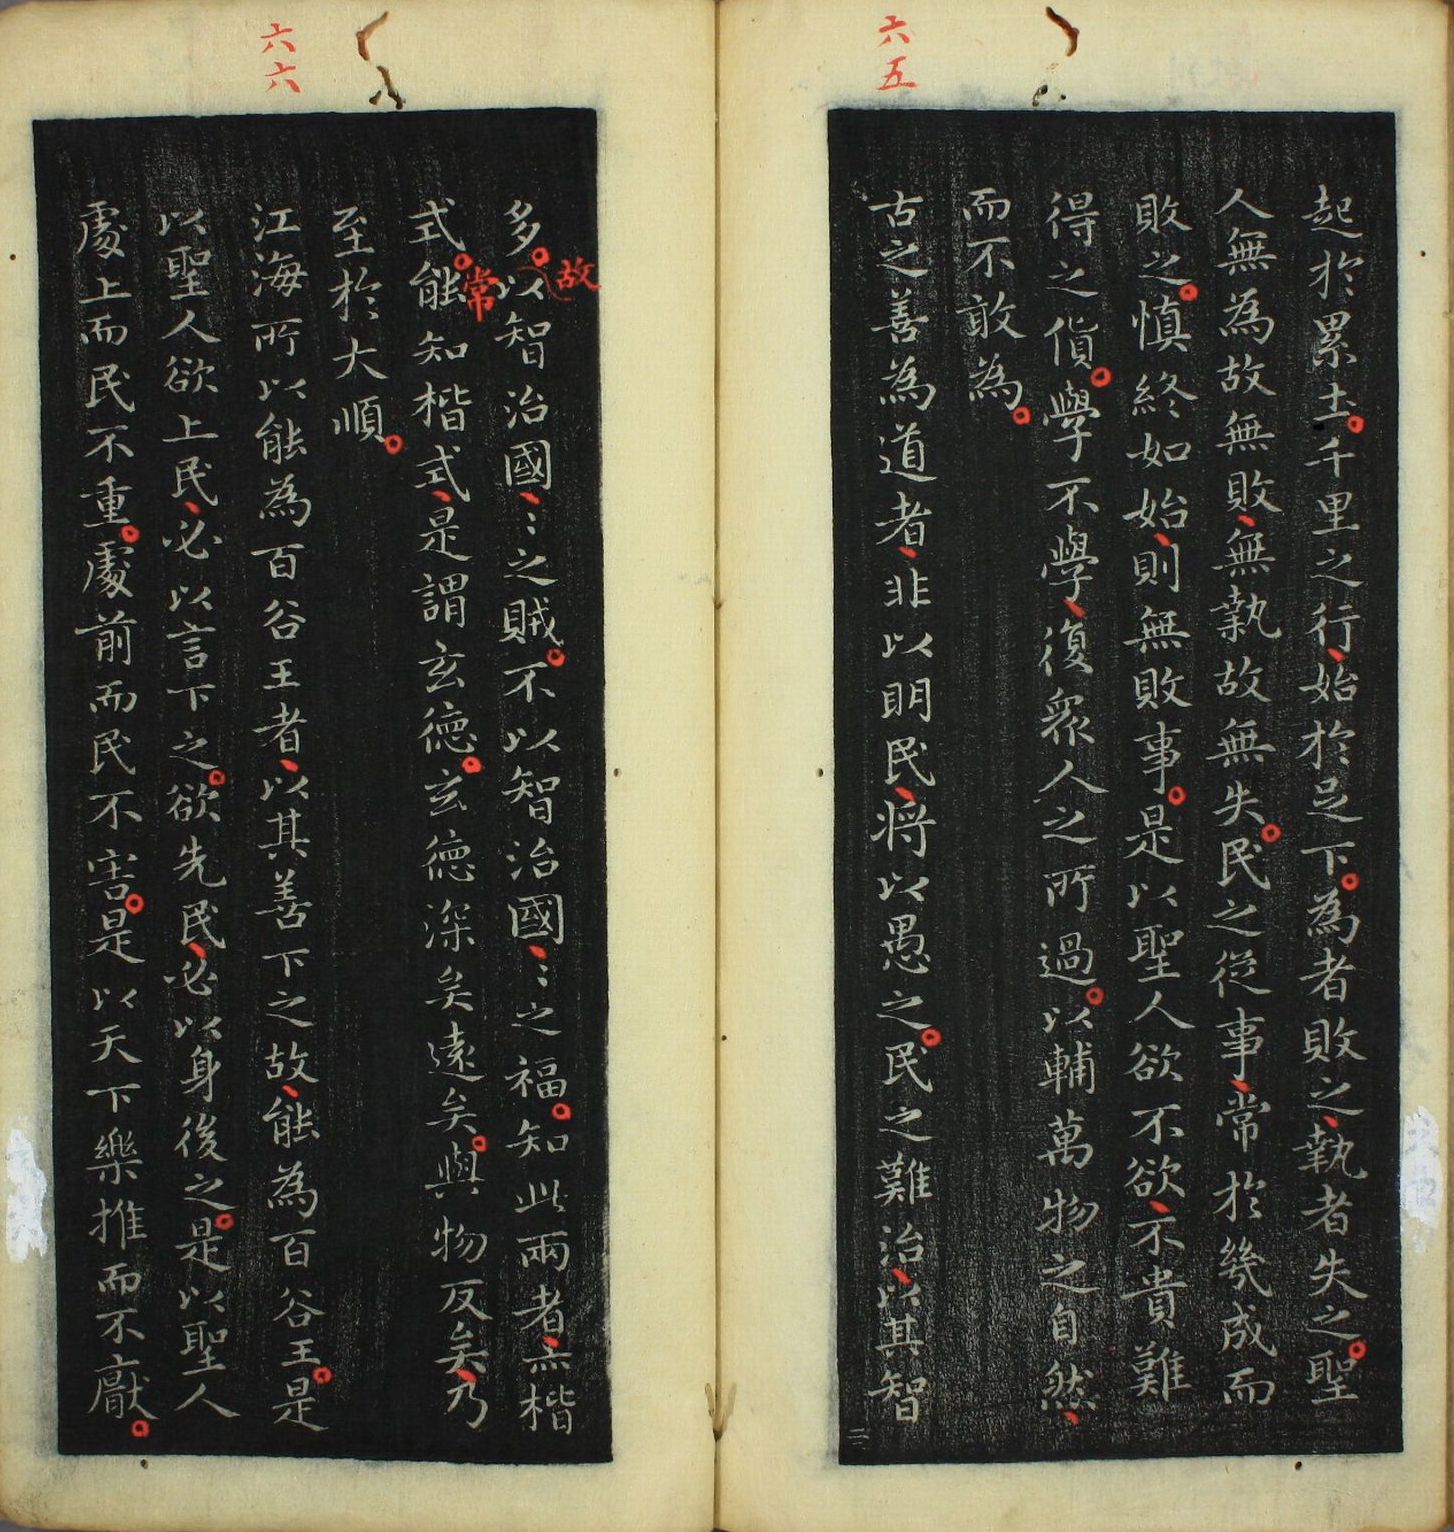 六五
起於累土。千里之行、始於足下。為者敗之、執者失之。聖
人無為故無敗、無執故無失。民之從事、常於幾成而
敗之。慎終如始、則無敗事。是以聖人欲不欲、不貴難
得之貨。學不學、復眾人之所過。以輔萬物之自然、
而不敢為。
古之善為道者、非以明民、将以愚之。民之難治、以其智
二
六六
多。故以智治國、〻之賊。不以智治國、〻之福。知此兩者、亦楷
式。常能知楷式、是謂玄德。玄德深矣遠矣。與物反矣、乃
至於大順。
江海所以能為百谷王者、以其善下之故、能為百谷王。是
以聖人欲上民、必以言下之。欲先民、必以身後之。是以聖人
處上而民不重。處前而民不害。是以天下樂推而不猒。